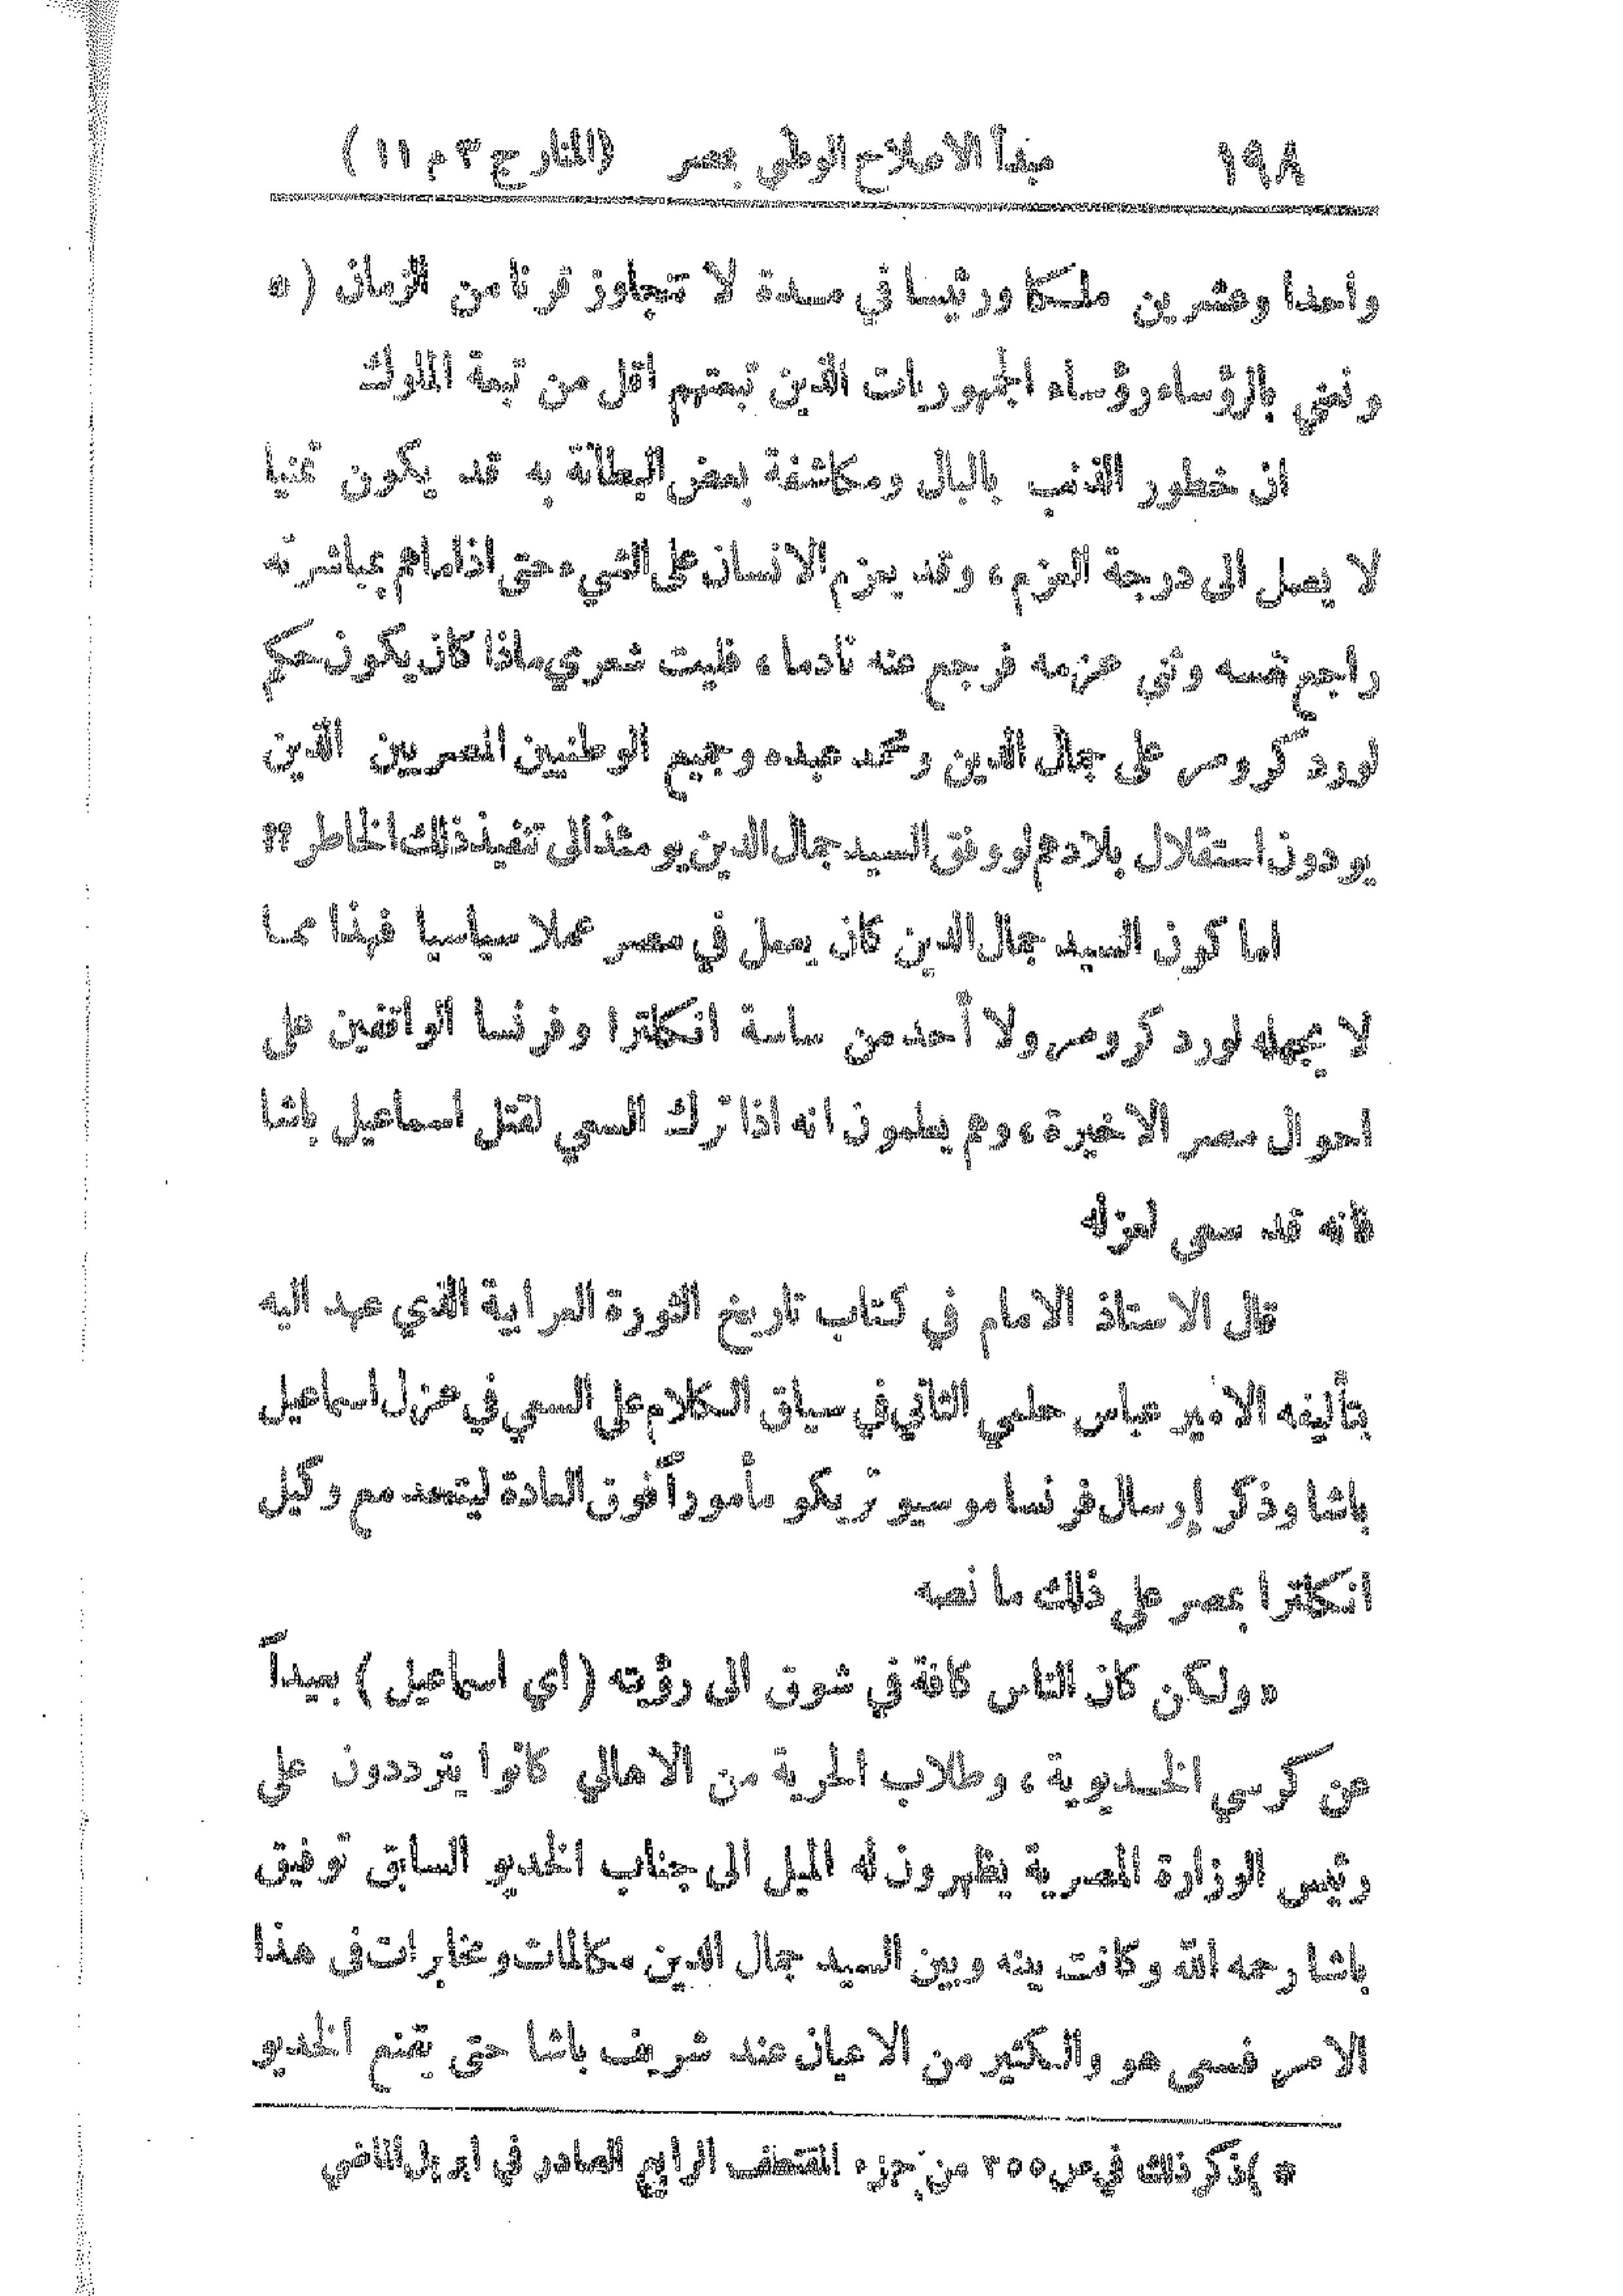 ١٩٨ مبدأ الاصلاح الوطني بمصر (المنار ج ٣ م ١١)
واحدا وعشرين ملكا ورئيسا في مدة لا تتجاوز قرنا من الزمان (*
ونعني بالرؤساء رؤساء الجمهوريات الذين تبعتهم اقل من تبعة الملوك
ان خطور الذنب بالبال ومكاشفة بعض البطانة به قد يكون تمنيا
لا يصل الى درجة العزم، وقد يعزم الانسان على الشيء حتى اذا ما هم بمباشرته
راجع نفسه وثنى عزمه فرجع عنه نادما، فليت شعري ماذا كان يكون حكم
لورد كرومر على جمال الدين ومحمد عبده وجميع الوطنيين المصريين الذين
يودون استقلال بلادهم لو وفق السيد جمال الدين يومئذ الى تنفيذ ذلك الخاطر ؟؟
اما كون السيد جمال الدين كان يعمل في مصر عملا سياسيا فهذا مما
لا يجهله لورد كرومر ولا أحد من ساسة انكلترا وفرنسا الواقفين على
احوال مصر الاخيرة، وهم يعلمون انه اذا ترك السعي لقتل اسماعيل باشا
فانه قد سعى لعزله
قال الاستاذ الامام في كتاب تاريخ الثورة العرابية الذي عهد اليه
بتأليفه الامير عباس حلمي الثاني في سياق الكلام على السعي في عزل اسماعيل
باشا وذكر إرسال فرنسا موسيو تريكو مأموراً فوق العادة ليتحد مع وكيل
انكلترا بمصر على ذلك ما نصه
«ولكن كان الناس كافة في شوق الى رؤيته (اي اسماعيل) بعيداً
عن كرسي الخديوية، وطلاب الحرية من الاهالي كانوا يترددون على
رئيس الوزارة المصرية يظهرون له الميل الى جناب الخديو السابق توفيق
باشا رحمه الله وكانت بينه وبين السيد جمال الدين مكالمات ومخابرات في هذا
الامر فسعى هو والكثير من الاعيان عند شريف باشا حتى يقنع الخديو
*) ذكر ذلك في ص ٣٥٥ من جزء المقتطف الرابع الصادر في ابريل الماضي